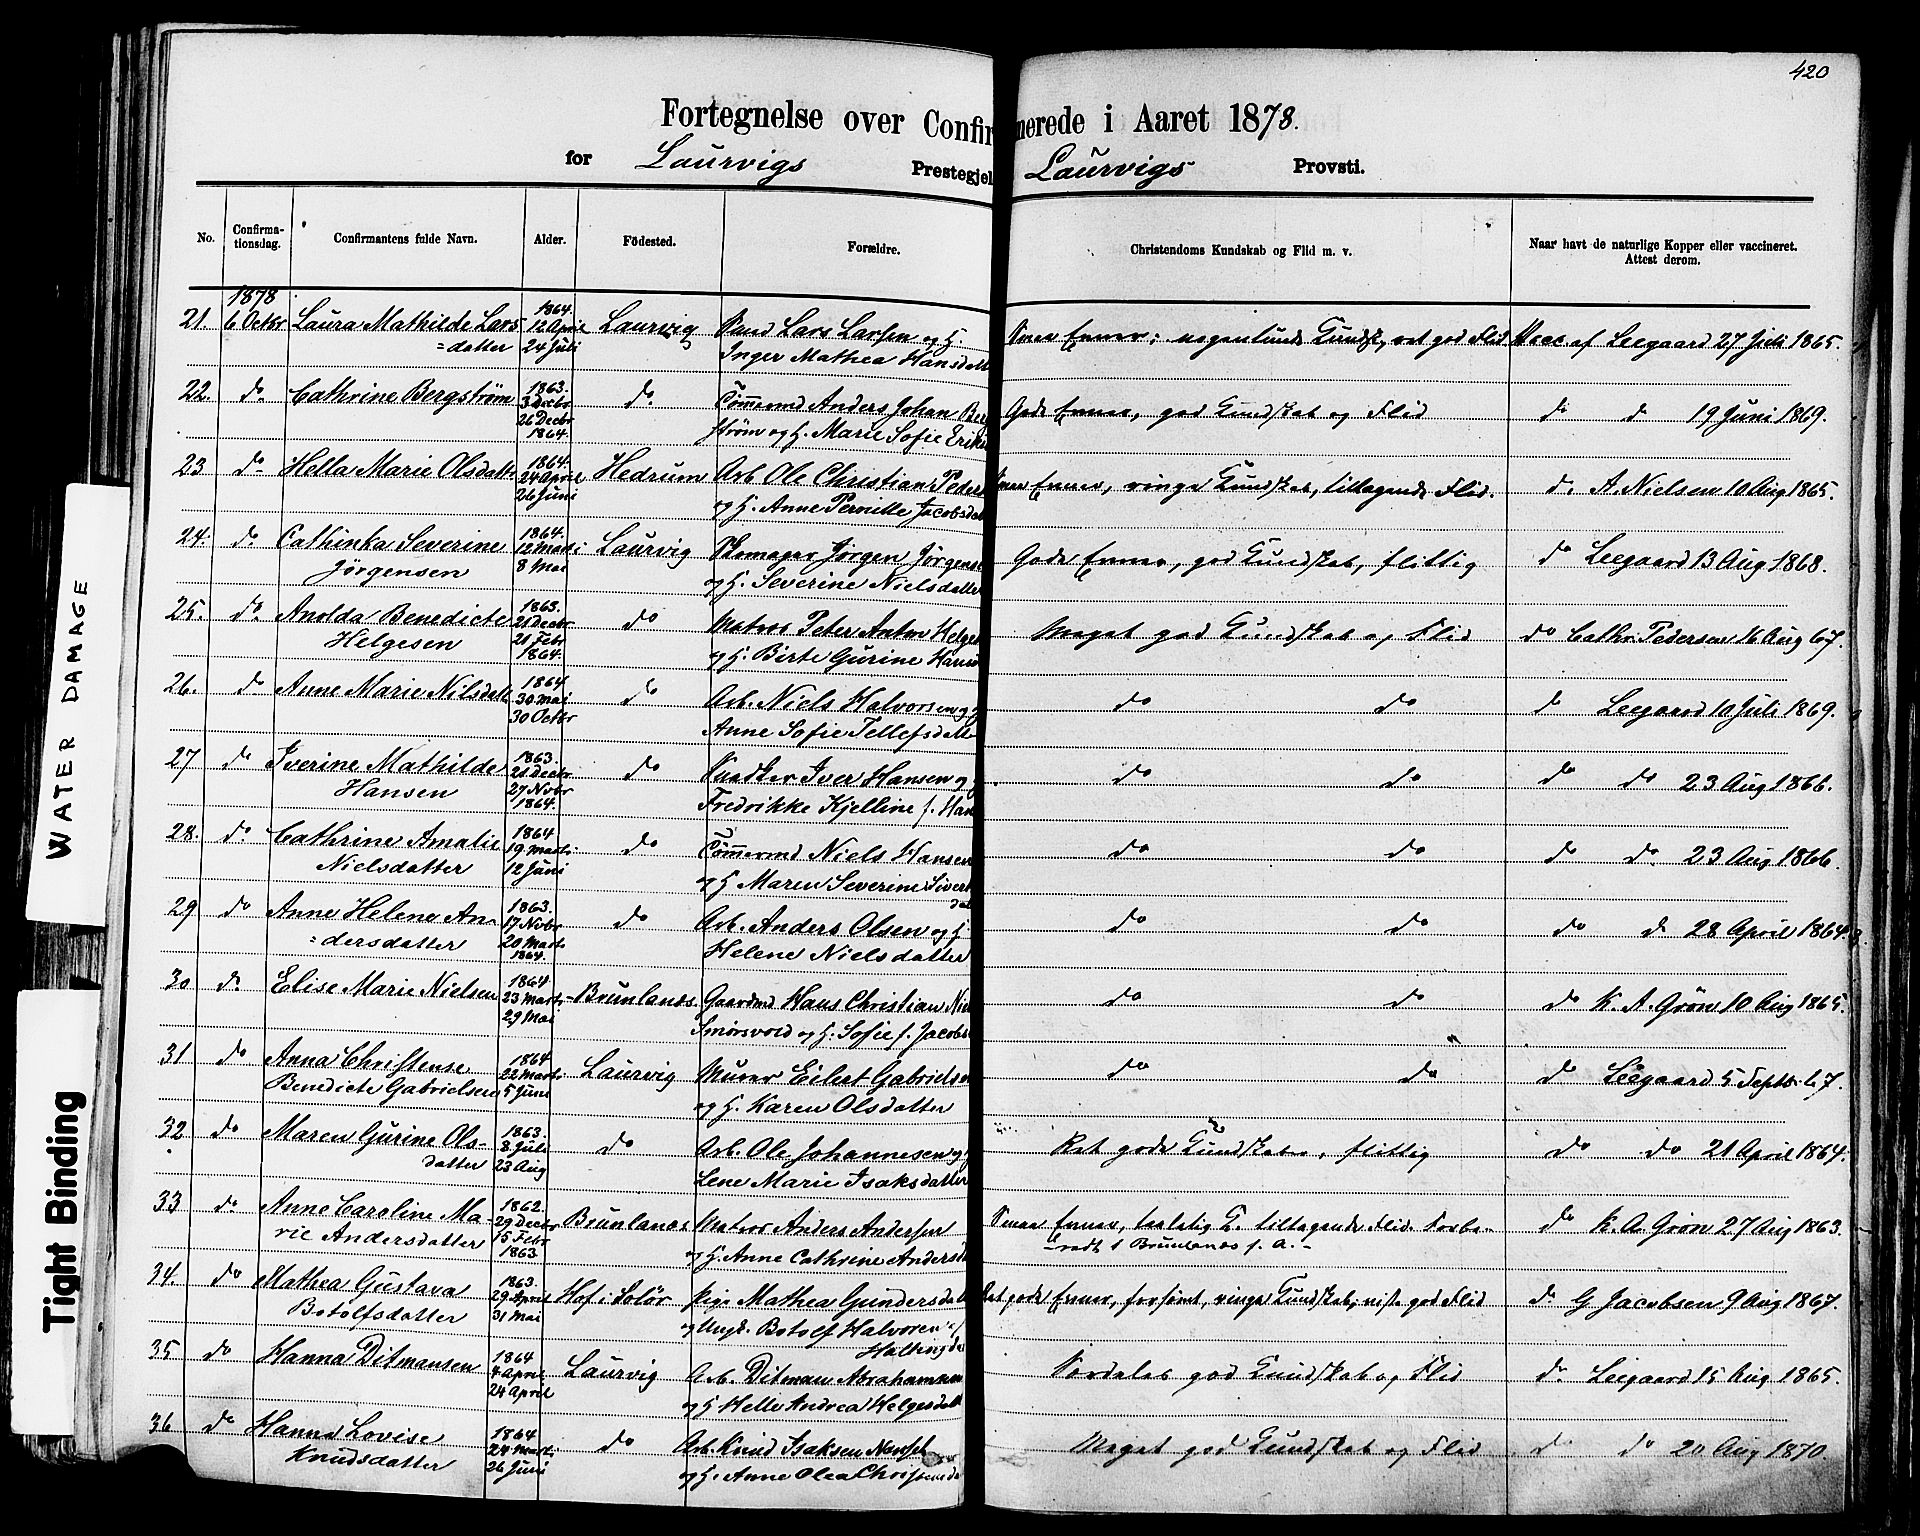 420
Fortegnelse over Confirmerede i Aaret 1878.
for Laurvigs Prestegjel Laurvigs Provsti.
No. Confirma-tionsdag. Confirmantens fulde Navn. Alder. Födested. Forældre. Christendoms Kundskab og Flid m. v. Naar havt de naturlige Kopper eller vaccineret. Attest derom.
1878 1864.
21. 6 Octbr Laura Mathilde Lars 12 April Laurvig Lars Larsen og H. Smaa Evner; nogenlunde Kundsk, ret god Flid Vacc. af Leegaard 27 Juli 1865.
=datter 24 Juli Inger Mathea Hansdatt
1863.
22. do Cathrine Bergström 3 Decbr do. Tömmermd Anders Johan Berg Gode Evner, god Kundskab og Flid do do 19 Juni 1869.
26 Decbr ström og H. Marie Sofie Eriks
1864.
1864.
23 do Hella Marie Olsdatt 24 April Hedrum Arb. Ole Christian Peders Smaa Evner, ringe Kundskab, tiltagende Flid. do. A. Nielsen 10 Aug 1865.
26 Juni og H. Anne Pernille Jacobsdatt
1864.
24. do. Cathinka Severine 12 Marts Laurvig Skomager Jørgen Jørgens Gode Evner, god Kundskab, flittig do Leegaard 13 Aug 1868.
Jørgensen 8 Mai og H. Severine Nielsdatter
1863.
25. do. Anolda Benedicte 25 Decbr do Matros Peter Anton Helges Meget god Kundskab og Flid do Cathr. Pedersen 16 Aug 67.
Helgesen 21 Febr og H. Birte Gurine Hans
1864.
1864
26. do Anne Marie Nilsdatt 30 Mai do Arb. Niels Halvorsen og H do do do Leegaard 10 Juli 1869.
30 Octbr Anne Sofie Tellefsdatt
1863.
27 do Iverine Mathilde 21 Decbr do Snedker Iver Hansen og H do do do do 23 Aug 1866.
Hansen 27 Nvbr Fredrikke Kjelline f. Han
1864.
1864
28. do. Cathrine Amalie 19 Marts do Tömmermd Niels Hansen do do do do. 23 Aug 1866.
Nielsdatter 12 Juni og H Maren Severine Sivert
dat
1863.
29 do Anne Helene An- 17 Nvbr do Arb. Anders Olsen og H. do do do do 28 April 1864.
=dersdatter 20 Marts Helene Nielsdatter
1864.
1864
30 do Elise Marie Nielsen 23 Marts Brunlanæs Gaardmd Hans Christian Nie do do do K. A. Grøn 10 Aug 1865.
29 Mai Smörsvold og H. Sofie f. Jacobs
1864
31 do Anna Christense 22 Marts Laurvig Murer Eilert Gabrielsen do do do Leegaard 5 Septbr 67.
Benedicte Gabrielsen 5 Juni og H. Karen Olsdatter
1863.
32 do Maren Gurine Ols- 8 Juli do Arb. Ole Johannesen og H Ret gode Kundskaber, flittig do do 21 April 1864.
datter 23 Aug Lene Marie Isaksdatter
1862.
33 do Anne Caroline Ma- 29 Decbr Brunlanæs Matros Anders Andersen Smaa Evner, taalelig K. tiltagende Flid. Forbe- do K. A. Grøn 27 Aug 1863.
rie Andersdatter 15 Febr og H. Anne Cathrine Andersd -redt i Brunlanæs f. A.-
1863
1863.
34. do Mathea Gustava 29 April Hof i Solör Pige Mathea Gundersdatt Ret gode Evner, forsömt, ringe Kundskab, viste god Flid do G Jacobsen 9 Aug 1867.
Botolfsdatter 31 Mai og Ungk. Botolf Halvorsen
1864
35 do Hanna Ditmansen 4 April Laurvig Arb. Ditman Abrahamsen Særdeles god Kundskab og Flid do. Leegaard 15 Aug 1865.
24 April og H Helle Andrea Helgesdatt
1864
36 do Hanna Lovise 24 Marts do Arb. Knud Isaksen Meget god Kundskab og Flid do do 20 Aug 1870.
Knudsdatter 26 Juni og H. Anne Olea Christensd
WATER DAMAGE
Tight Binding